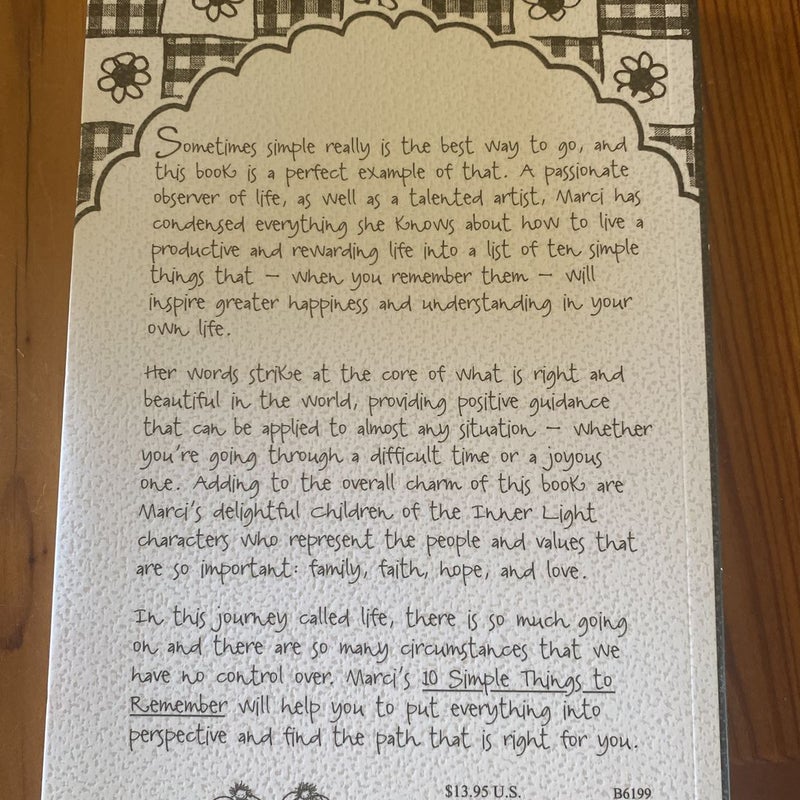 Sometimes simple really is the best way to go, and
this book is a perfect example of that. A passionate
observer of life, as well as a talented artist, Marci has
condensed everything she knows about how to live a
productive and rewarding life into a list of ten simple
things that — when you remember them — will
inspire greater happiness and understanding in your
own life.
Her words strike at the core of what is right and
beautiful in the world, providing positive guidance
that can be applied to almost any situation — whether
you're going through a difficult time or a joyous
one. Adding to the overall charm of this book are
Marci's delightful Children of the Inner Light
characters who represent the people and values that
are so important: family, faith, hope, and love.
In this journey called life, there is so much going
on and there are so many circumstances that we
have no control over. Marci's 10 Simple Things to
Remember will help you to put everything into
perspective and find the path that is right for you.
$13.95 U.S. B6199